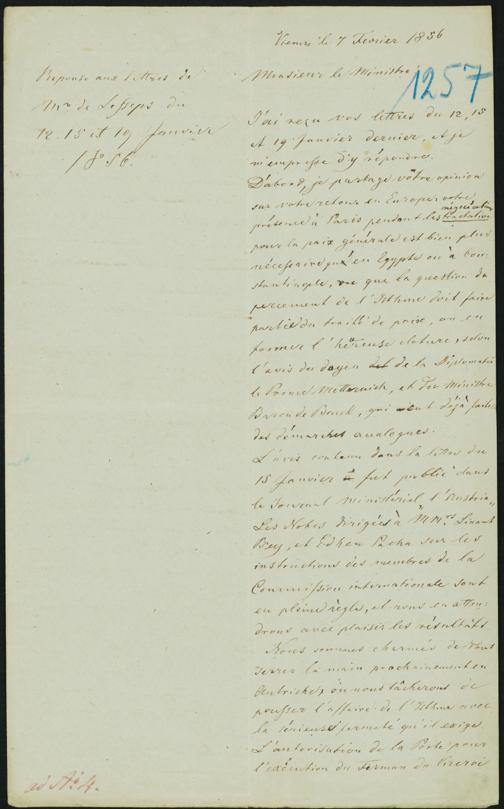 Vienne le 7 Février 1856
Réponse aux lettres de
Mr. de Lesseps du
12. 15 et 19 Janvier
1856.
1257
Monsieur le Ministre!
J'ai reçu vos lettres du 12, 15
et 19 Janvier dernier, et je
m'empresse d'y répondre.
D'abord, je partage vôtre opinion
sur votre retour en Europe; votre
présence à Paris pendant les négociations
pour la paix générale est bien plus
nécessaire qu'en Egypte ou à Con-
stantinople, vu que la question du
percement de l'Isthme doit faire
partie du traité de paix, ou en
former l'héureuse cloture, selon
l'avis du doyen de la Diplomatie
le Prince Metternich, et du Ministre
Baron de Bruck, qui déjà faites
des démarches analogues.
L'avis contenu dans la lettre du
15 Janvier fut publié dans
le Journal ministérial l'Austria.
Les Notes dirigées à MMrs. Linant
Bey, et Edhem Pacha sur les
instructions des membres de la
Commission internationale sont
en pleine règle, et nous en atten-
drons avec plaisir les résultats
Nous sommes charmés de vous
serrer la main prochainement en
Autriche, où nous tâcherons de
pousser l'affaire de l'Isthme avec
la sérieuse fermeté qu'il exige.
L'autorisation de la Porte pour
l'exécution du Ferman du Viceroi
ad No. 4.